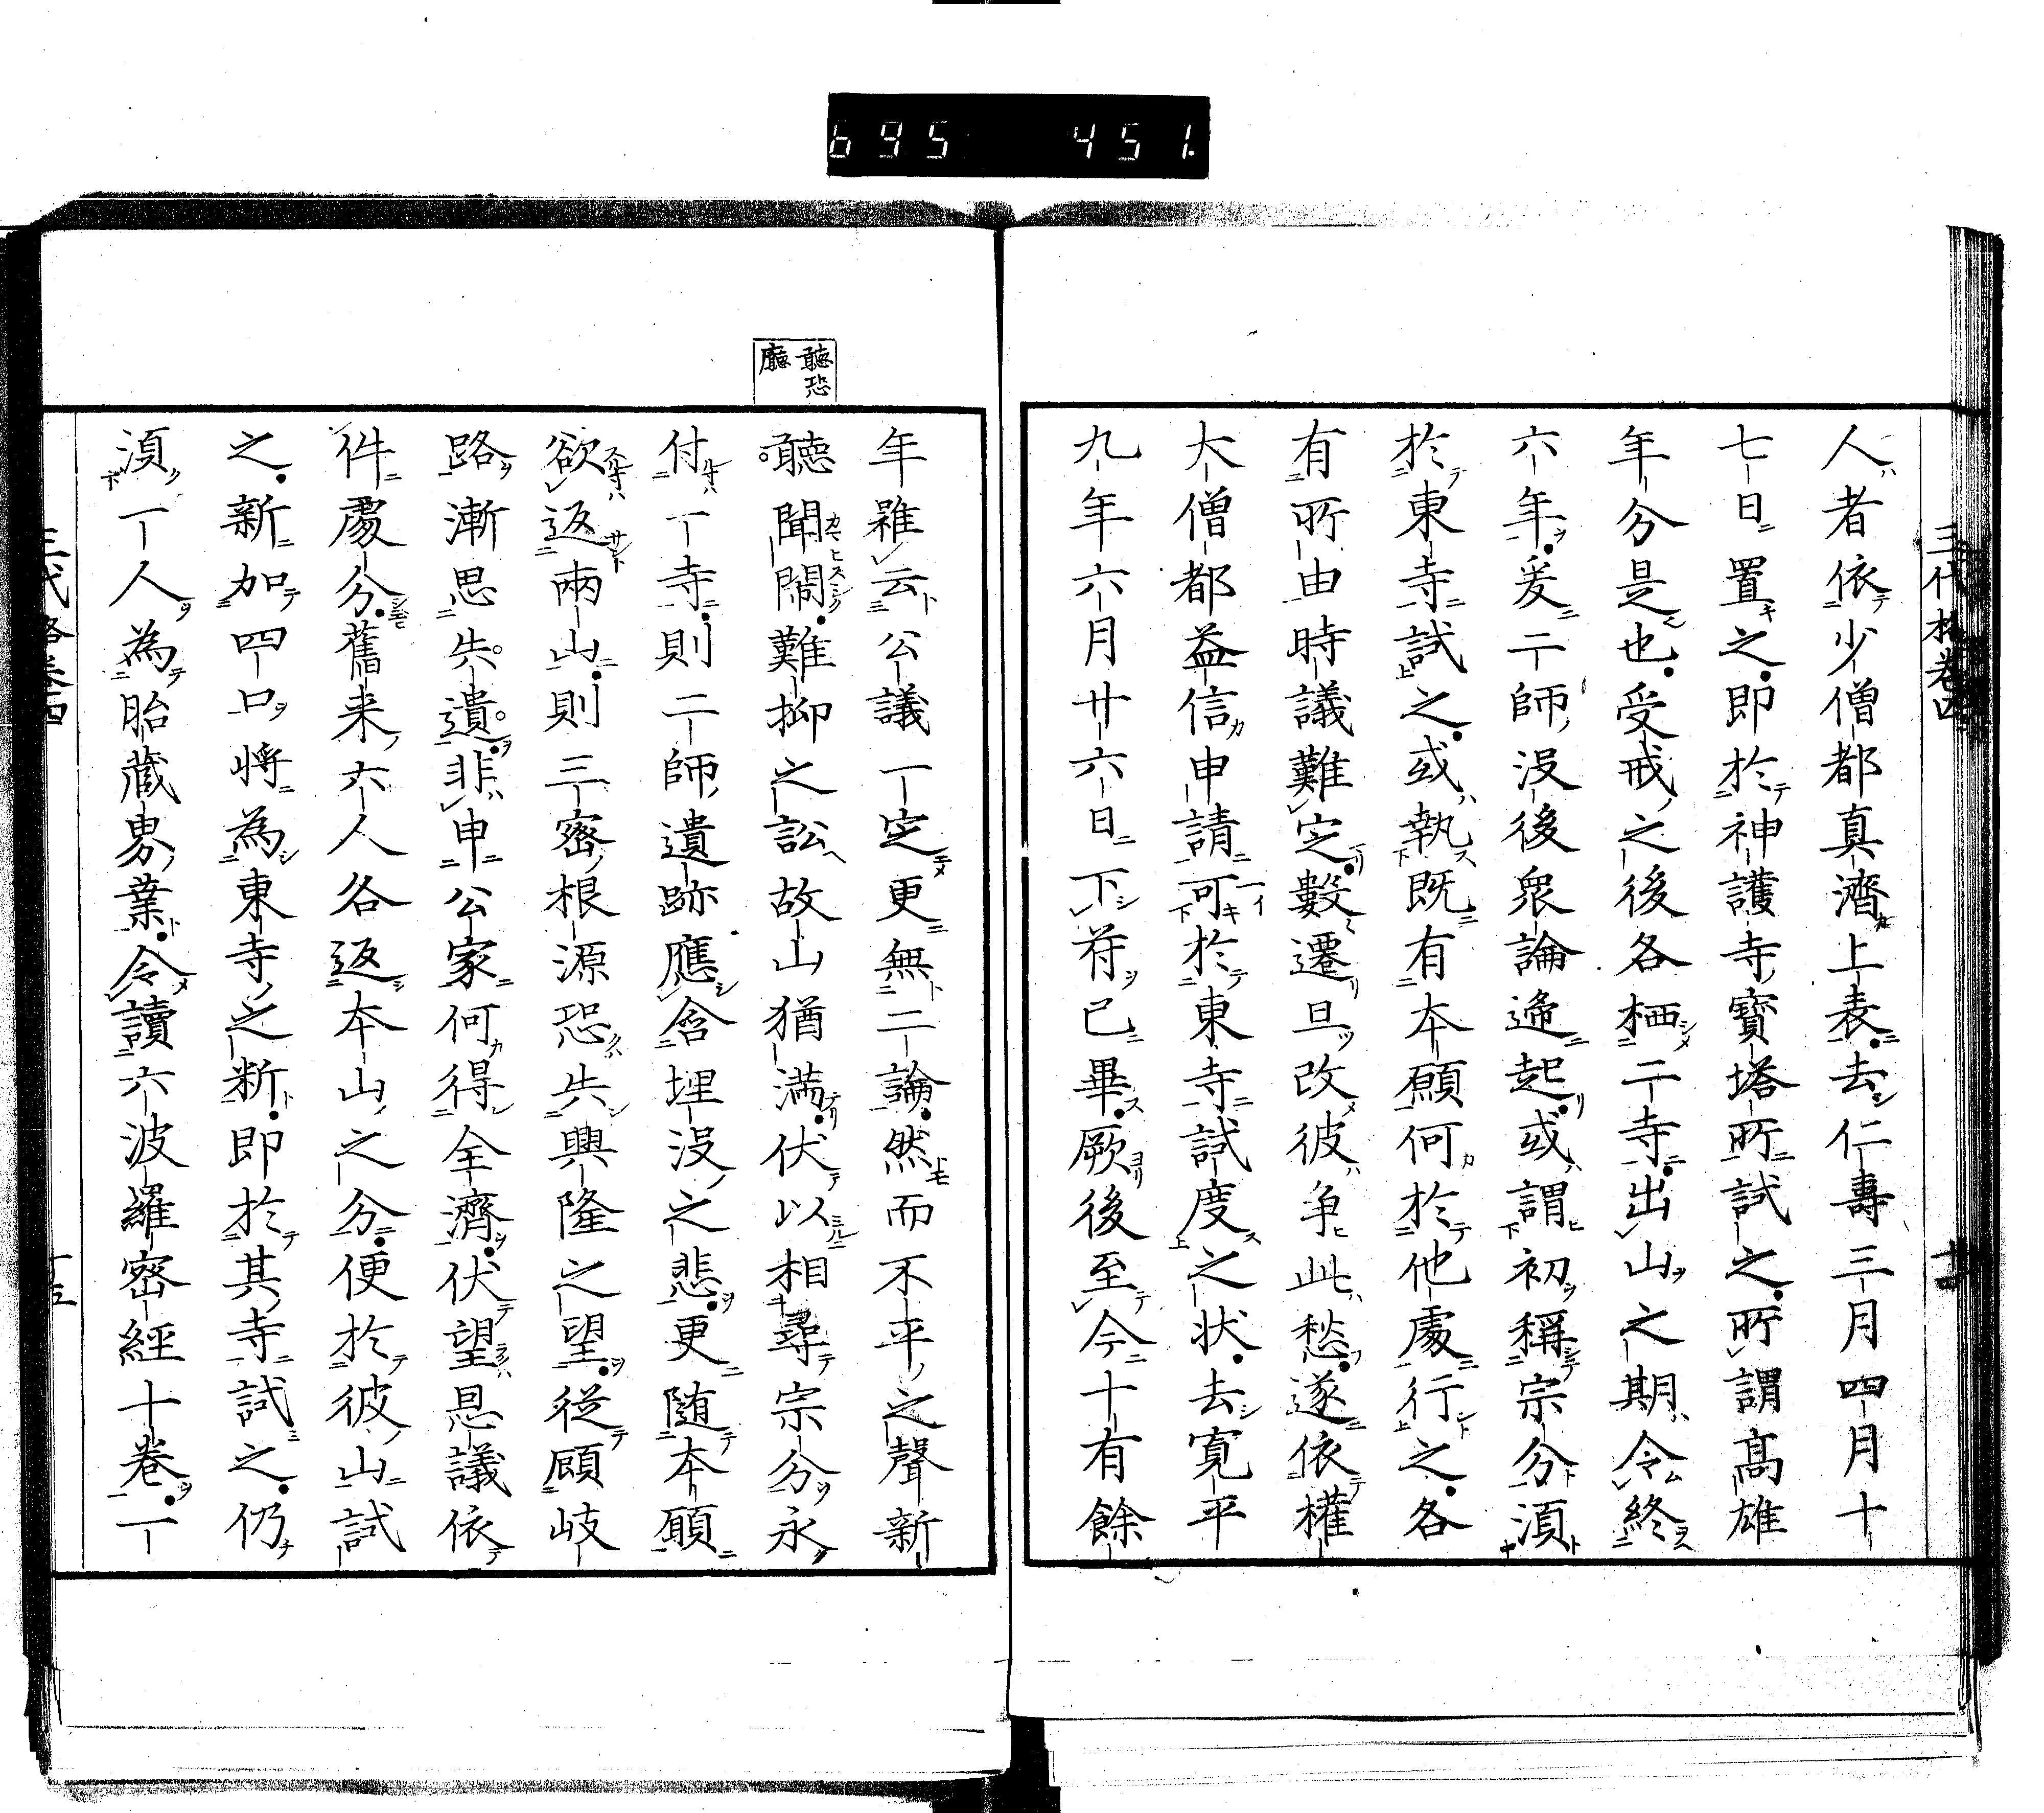 695 451.
三代格卷四
人者依少僧都真濟上表去仁壽三月四月十
七日置之即於神護寺寳塔所試之所謂髙雄
年分是也受戒之後各栖二寺出山之期令終
六年爰二師沒後衆論遞起或謂初稱宗分湏
於東寺試之或執既有本願何於他處行之各
有所由時議難定數遷且改彼争此愁遂依權
大僧都益信申請可於東寺試度之状去寛平
九年六月廿六日下符已畢厥後至今十有餘
聽恐
廳
年雖云公議一定更無二論然而不平之聲新
聽聞閙難抑之訟故山猶満伏以相尋宗分永
付一寺則二師遺跡應含埋沒之悲更随本願
欲返兩山則三密根源恐失興隆之望従顧岐
路漸思失遺非申公家何得全濟伏望曷議依
件處分舊来六人各返本山之分便於彼山試
之新加四口将為東寺之新即於其寺試之仍
湏一人為胎蔵界業令讀六波羅密經十卷一
三代格卷四